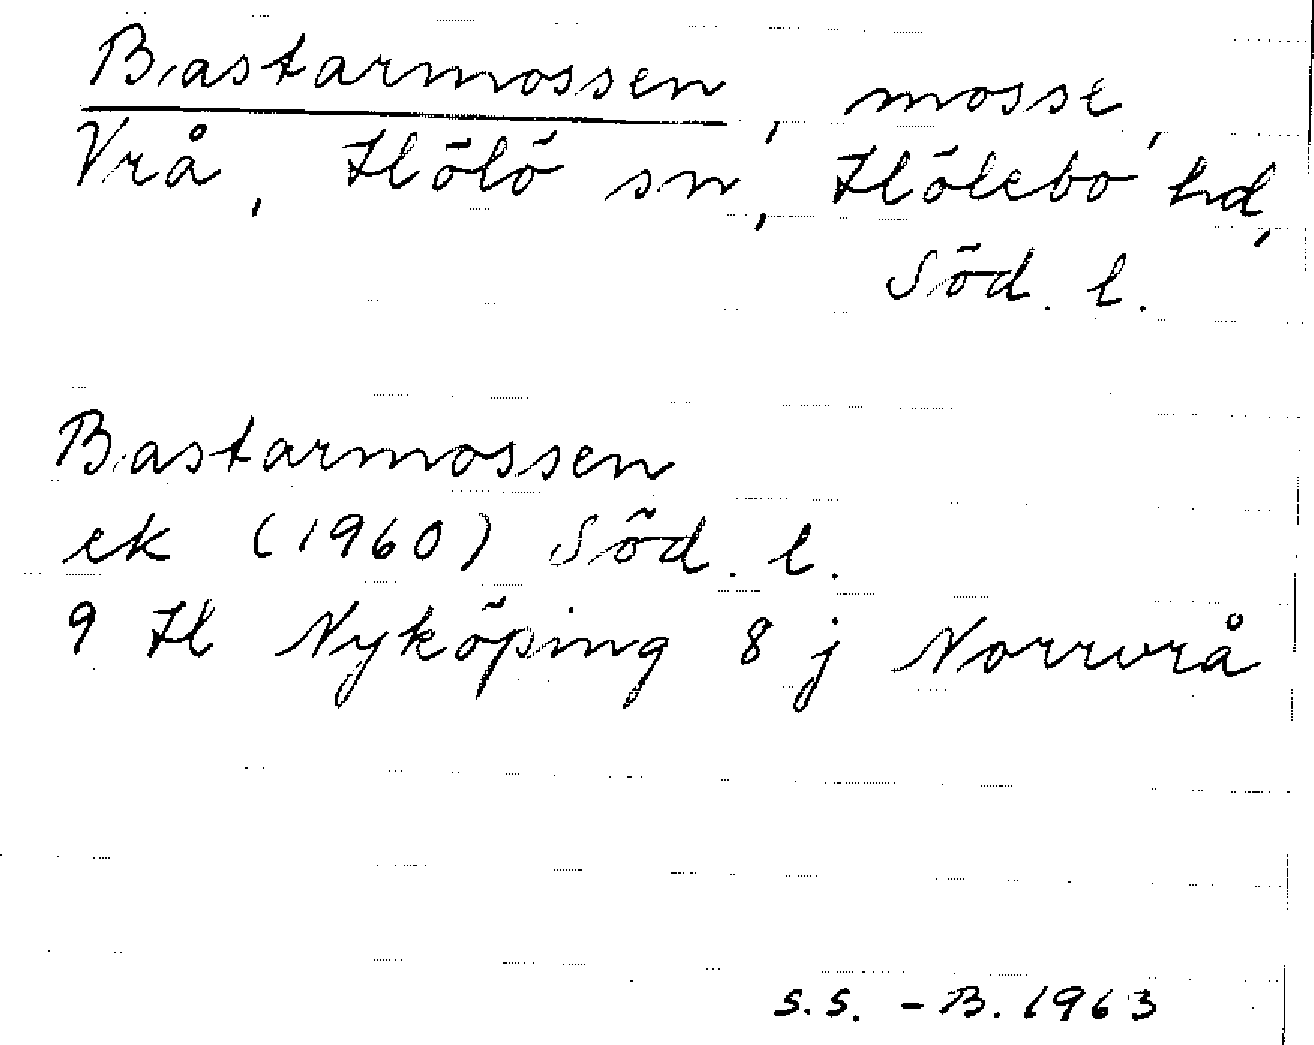 Bastarmossen, mosse,
Vrå, Hölö sn, Hölebo hd,
Söd. l.
Bastarmossen
ek (1960) Söd. l.
9 H Nyköping 8 j Norrvrå
S.S. - B. 1963